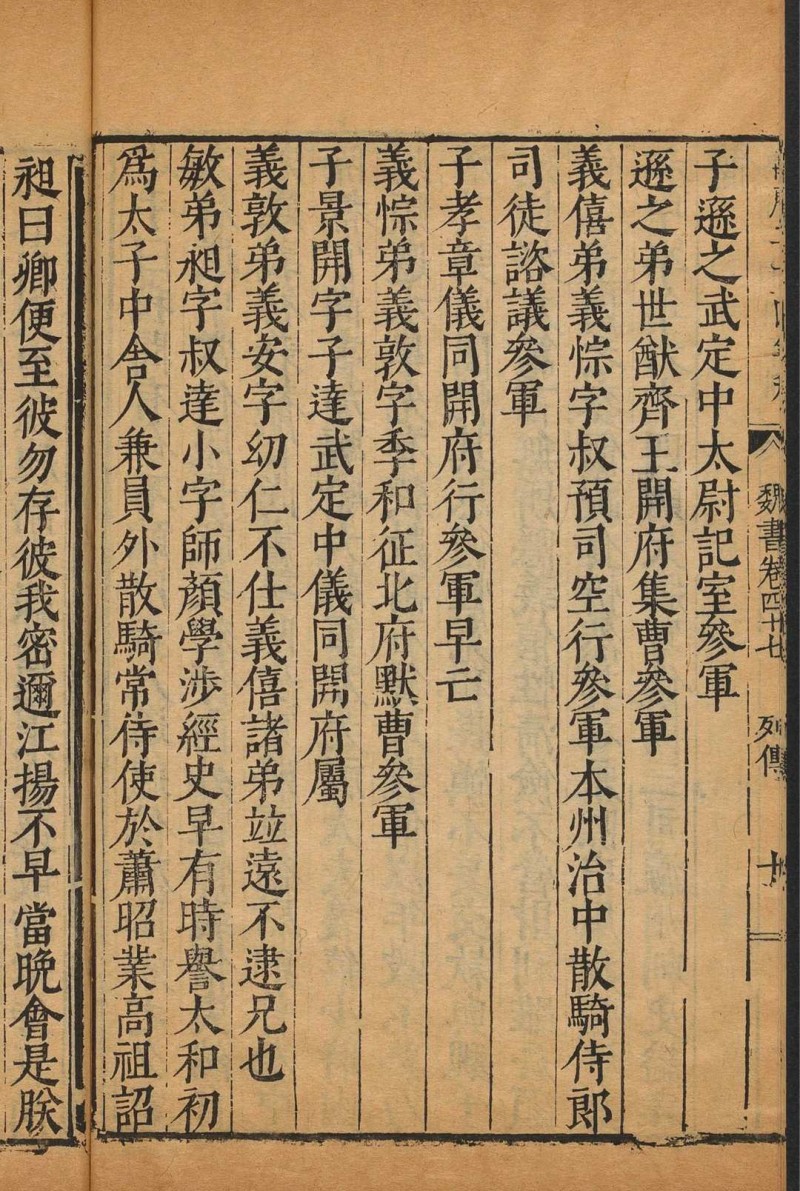 魏書卷四十七 列傳 十
子遜之武定中太尉記室參軍
遜之弟世猷齊王開府集曹參軍
義僖弟義悰字叔預司空行參軍本州治中散騎侍郎
司徒諮議參軍
子孝章儀同開府行參軍早亡
義悰弟義敦字季和征北府默曹參軍
子景開字子達武定中儀同開府屬
義敦弟義安字幼仁不仕義僖諸弟竝遠不逮兄也
敏弟昶字叔達小字師顏學涉經史早有時譽太和初
爲太子中舍人兼員外散騎常侍使於蕭昭業高祖詔
昶曰卿便至彼勿存彼我密邇江揚不早當晚會是朕